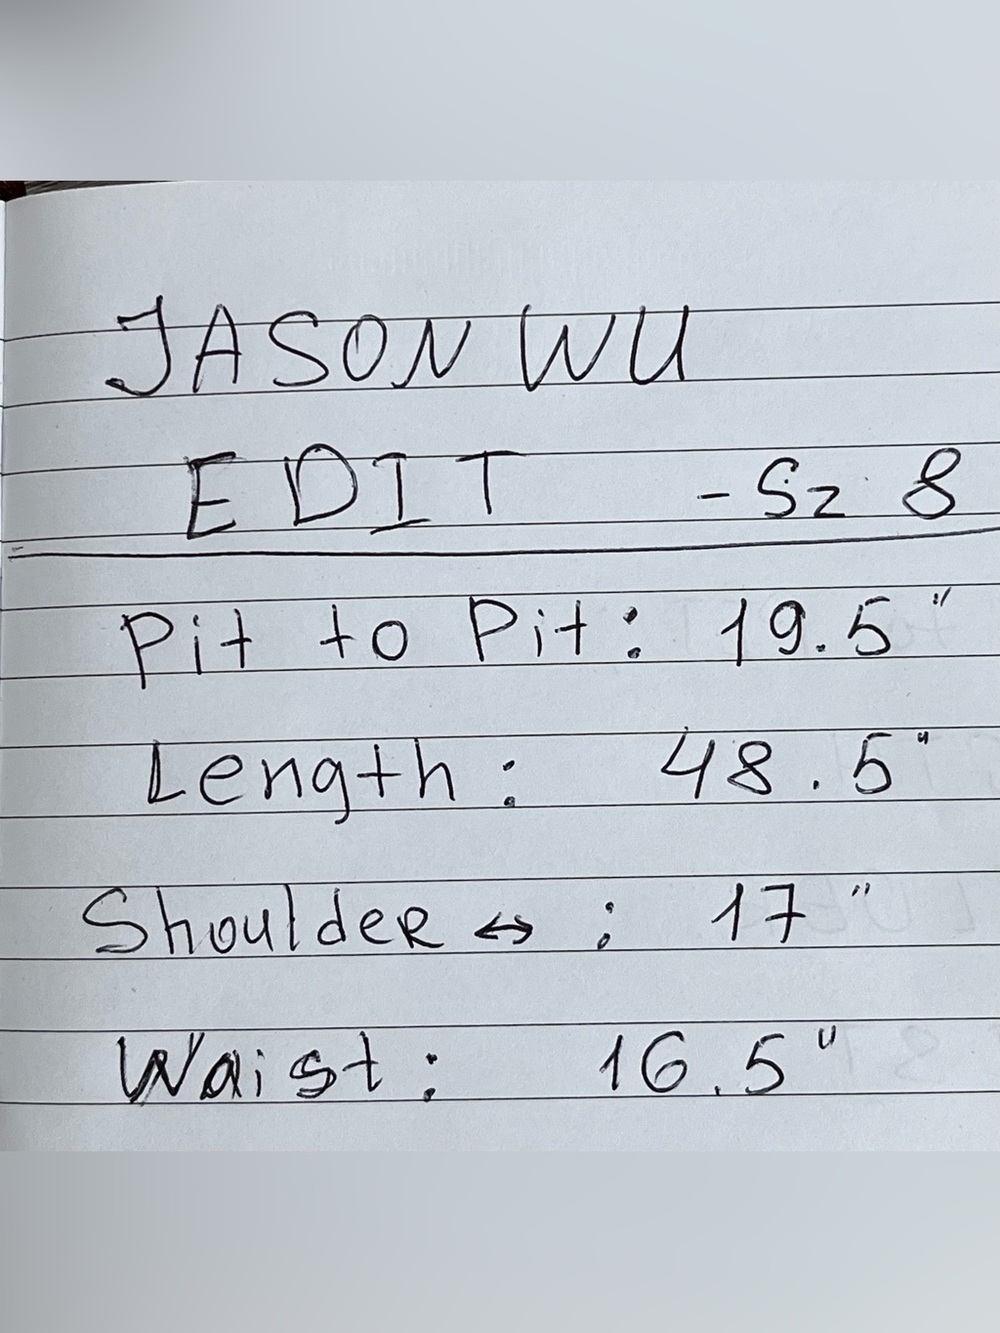 JASON WU
EDIT - Sz 8
Pit to Pit: 19.5"
Length: 48.5"
Shoulder ↔ : 17"
Waist: 16.5"